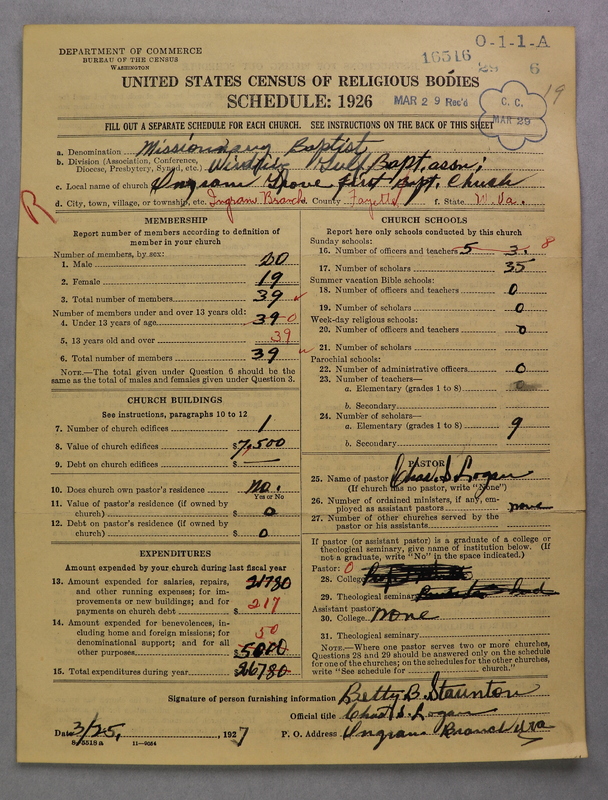 DEPARTMENT OF COMMERCE
BUREAU OF THE CENSUS
WASHINGTON
16516
O-1-1-A
29 6
UNITED STATES CENSUS OF RELIGIOUS BODIES
SCHEDULE: 1926
MAR 29 Rec'd
C. C.
MAR 29
19
FILL OUT A SEPARATE SCHEDULE FOR EACH CHURCH. SEE INSTRUCTIONS ON THE BACK OF THIS SHEET
a. Denomination Missionary Baptist
b. Division (Association, Conference, Diocese, Presbytery, Synod, etc.) Gulf Bapt. assn;
c. Local name of church Ingram Grove first Bapt. Church
d. City, town, village, or township, etc. Ingram Branch e. County Fayette f. State W. Va.
R
MEMBERSHIP
Report number of members according to definition of member in your church
Number of members, by sex:
1. Male 20
2. Female 19
3. Total number of members 39
Number of members under and over 13 years old:
4. Under 13 years of age 39 0
5. 13 years old and over 39
6. Total number of members 39
NOTE.—The total given under Question 6 should be the same as the total of males and females given under Question 3.
CHURCH BUILDINGS
See instructions, paragraphs 10 to 12
7. Number of church edifices 1
8. Value of church edifices $7,500
9. Debt on church edifices $ —
10. Does church own pastor's residence No.
Yes or No
11. Value of pastor's residence (if owned by church) $ 0
12. Debt on pastor's residence (if owned by church) $ 0
EXPENDITURES
Amount expended by your church during last fiscal year
13. Amount expended for salaries, repairs, and other running expenses; for improvements or new buildings; and for payments on church debt $ 21780
217
14. Amount expended for benevolences, including home and foreign missions; for denominational support; and for all other purposes $
50
15. Total expenditures during year 26780
CHURCH SCHOOLS
Report here only schools conducted by this church
Sunday schools:
16. Number of officers and teachers 5 3. 8
17. Number of scholars 35
Summer vacation Bible schools:
18. Number of officers and teachers 0
19. Number of scholars 0
Week-day religious schools:
20. Number of officers and teachers 0
21. Number of scholars
Parochial schools:
22. Number of administrative officers 0
23. Number of teachers—
a. Elementary (grades 1 to 8)
b. Secondary
24. Number of scholars—
a. Elementary (grades 1 to 8) 9
b. Secondary
PASTOR
25. Name of pastor Chas. S. Logan
(If church has no pastor, write "None")
26. Number of ordained ministers, if any, employed as assistant pastors none
27. Number of other churches served by the pastor or his assistants
If pastor (or assistant pastor) is a graduate of a college or theological seminary, give name of institution below. (If not a graduate, write "No" in the space indicated.)
Pastor: 0
28. College
29. Theological seminary
Assistant pastor:
30. College None
31. Theological seminary
NOTE.—Where one pastor serves two or more churches, Questions 28 and 29 should be answered only on the schedule for one of the churches; on the schedules for the other churches, write "See schedule for church."
Signature of person furnishing information Betty B. Staunton
Official title Chas. S. Logan
Date 3/25, 1927 P. O. Address Ingram Branch W Va
8-5518a 11-9054